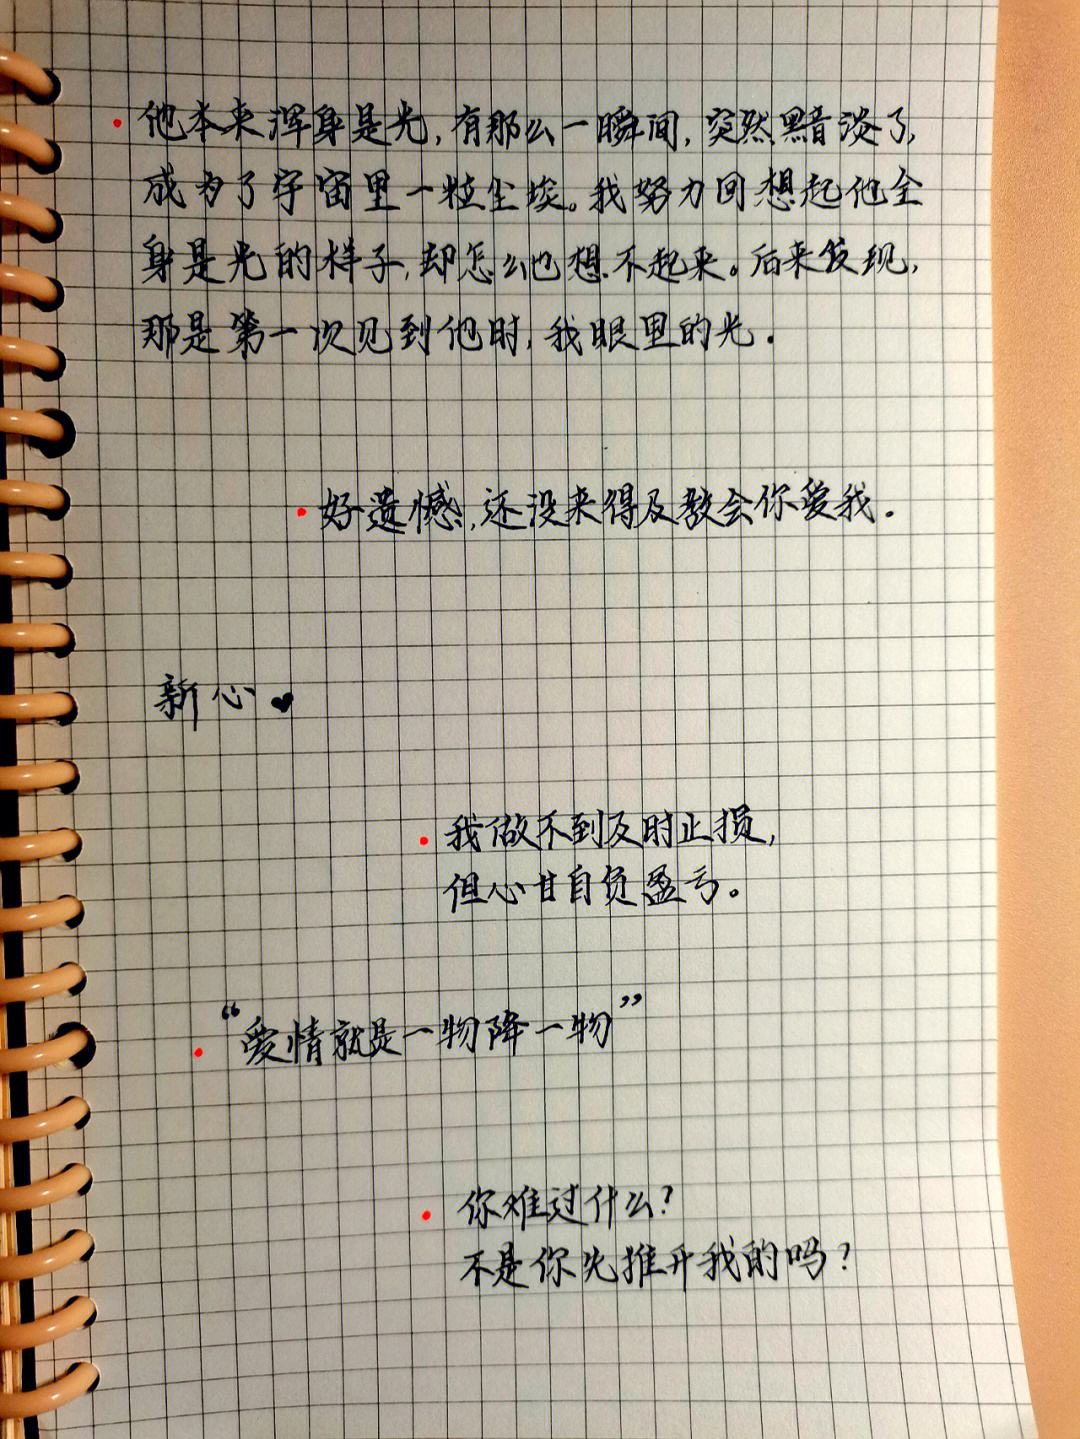 他本来浑身是光,有那么一瞬间,突然黯淡了,
成为了宇宙里一粒尘埃。我努力回想起他全
身是光的样子,却怎么也想不起来。后来发现,
那是第一次见到他时,我眼里的光.
好遗憾,还没来得及教会你爱我.
新心❤
我做不到及时止损,
但心甘自负盈亏。
“爱情就是一物降一物”
你难过什么?
不是你先推开我的吗?